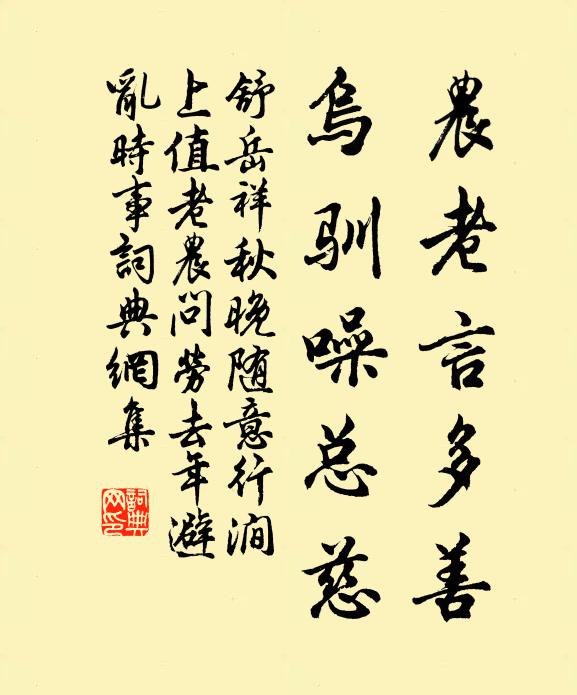 農老言多善
烏馴噪总慈
舒岳祥秋晚随意行澗
上值老農問勞去年避
亂時事詞典網集
詞典网印